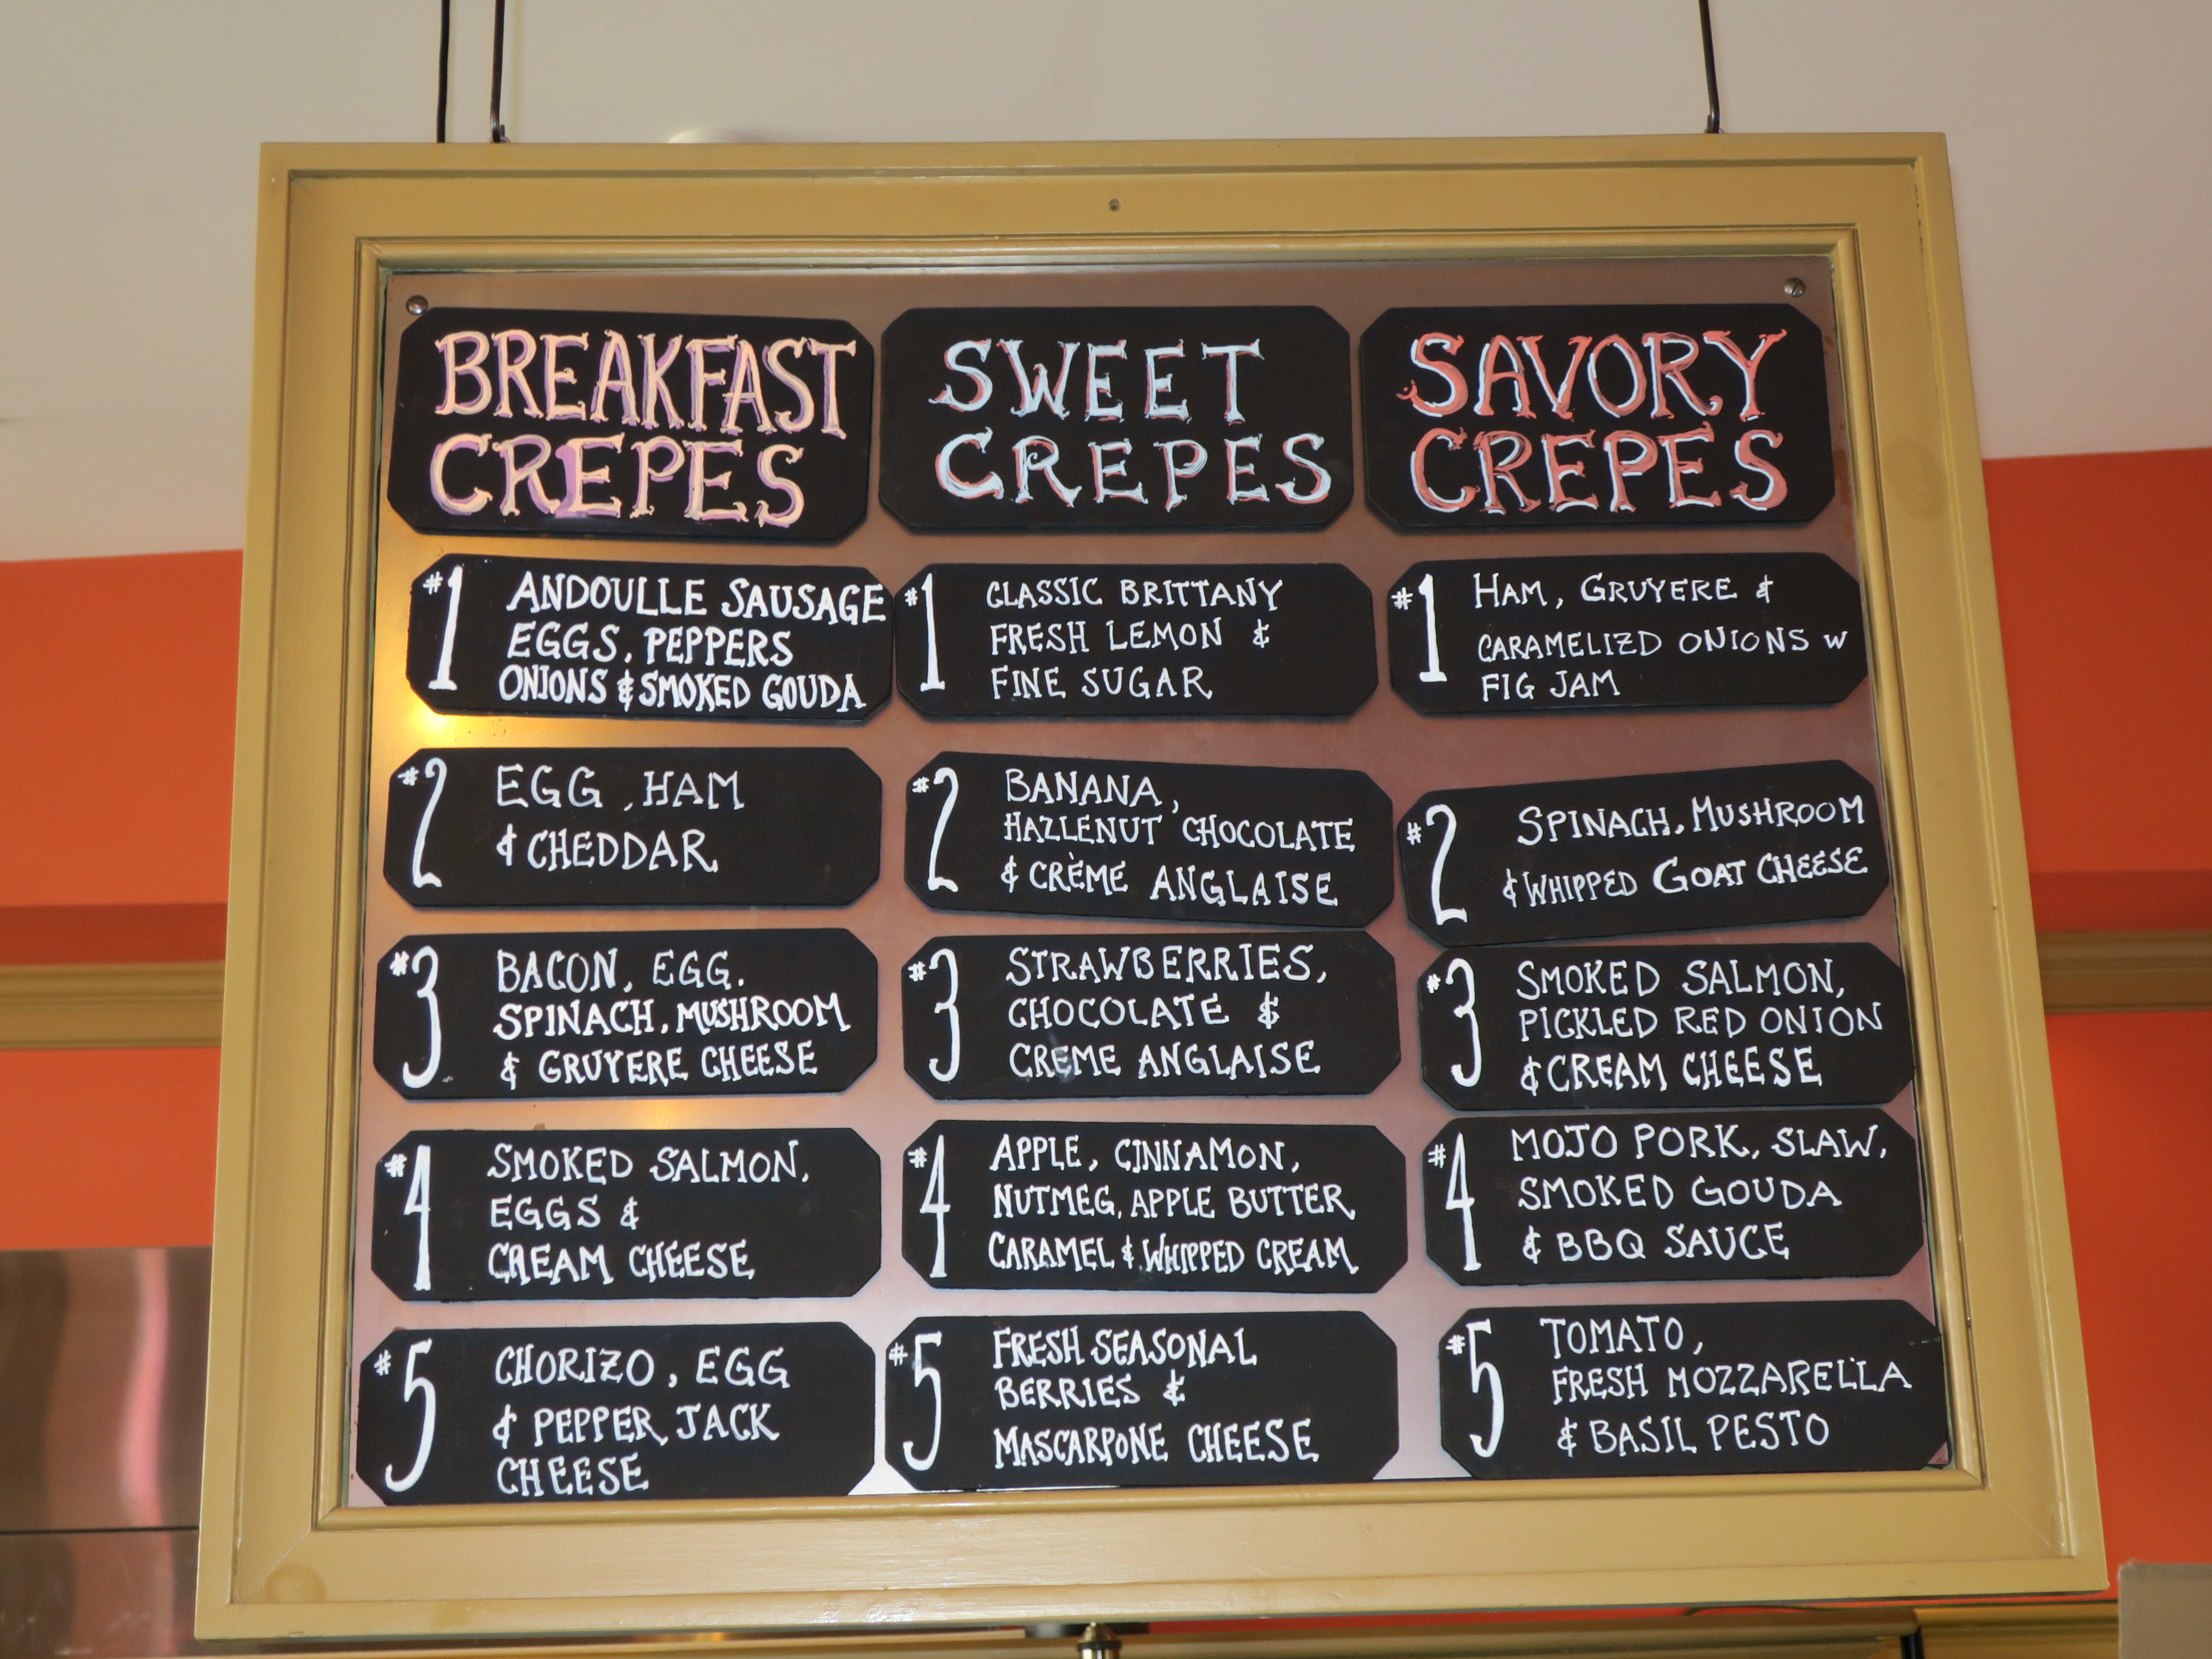 BREAKFAST
CREPES
#1 ANDOULLE SAUSAGE
EGGS, PEPPERS
ONIONS & SMOKED GOUDA
#2 EGG, HAM
& CHEDDAR
#3 BACON, EGG.
SPINACH, MUSHROOM
& GRUYERE CHEESE
#4 SMOKED SALMON,
EGGS &
CREAM CHEESE
#5 CHORIZO, EGG
& PEPPER JACK
CHEESE
SWEET
CREPES
#1 CLASSIC BRITTANY
FRESH LEMON &
FINE SUGAR
#2 BANANA,
HAZLENUT CHOCOLATE
& CRÈME ANGLAISE
#3 STRAWBERRIES,
CHOCOLATE &
CREME ANGLAISE
#4 APPLE, CINNAMON,
NUTMEG, APPLE BUTTER
CARAMEL & WHIPPED CREAM
#5 FRESH SEASONAL
BERRIES &
MASCARPONE CHEESE
SAVORY
CREPES
#1 HAM, GRUYERE &
CARAMELIZD ONIONS W
FIG JAM
#2 SPINACH, MUSHROOM
& WHIPPED GOAT CHEESE
#3 SMOKED SALMON,
PICKLED RED ONION
& CREAM CHEESE
#4 MOJO PORK, SLAW,
SMOKED GOUDA
& BBQ SAUCE
#5 TOMATO,
FRESH MOZZARELLA
& BASIL PESTO